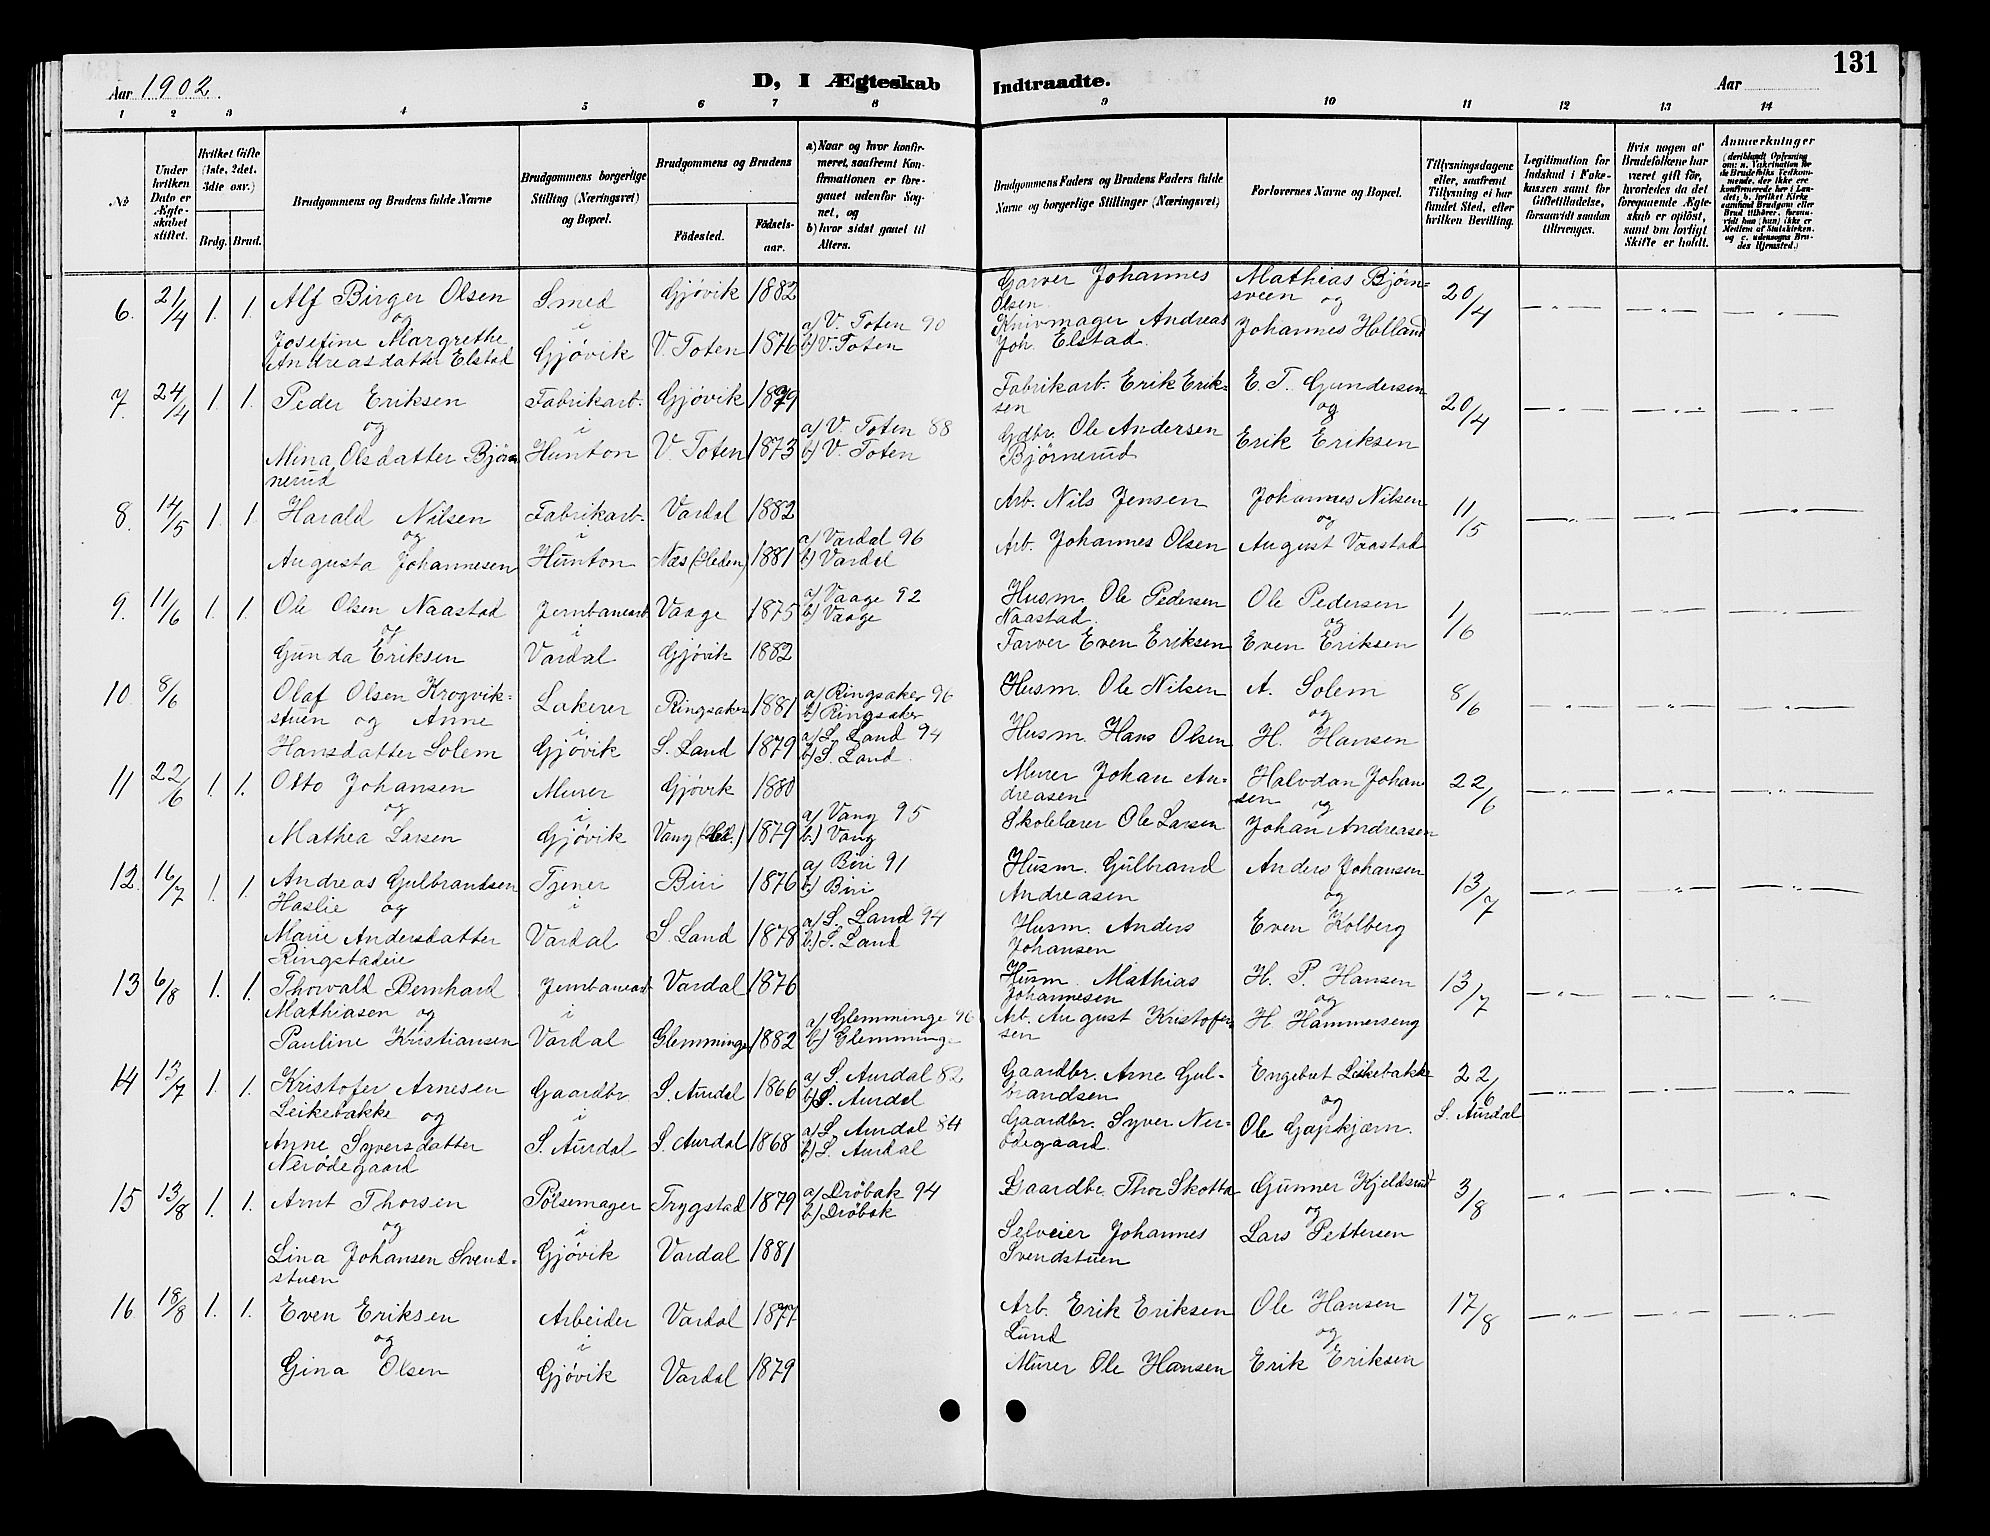 131
Aar 1902.
D, I Ægteskab Indtraadte.
Aar
1 2 3 4 5 6 7 8 9 10 11 12 13 14
No
Under hvilken Dato er Ægteskabet stiftet.
Hvilket Gifte (1ste, 2det, 3die osv.)
Brdg. Brud.
Brudgommens og Brudens fulde Navne
Brudgommens borgerlige Stilling (Næringsvei) og Bopæl.
Brudgommens og Brudens
Födested.
Födsels-aar.
a) Naar og hvor konfirmeret, saafremt Konfirmationen er foregaaet udenfor Sognet, og
b) hvor sidst gaaet til Alters.
Brudgommens Faders og Brudens Faders fulde Navne og borgerlige Stillinger (Næringsvei)
Forlovernes Navne og Bopæl.
Tillysningsdagene eller, saafremt Tillysning ei har fundet Sted, efter hvilken Bevilling.
Legitimation for Indskud i Fakekassen samt for Giftetilladelse, forsaavidt saadan tiltrænges.
Hvis nogen af Brudefolkene har været gift för, hvorledes da det foregaaende Ægteskab er oplöst, samt om lovligt Skifte er holdt.
Anmærkninger
6. 21/4 1. 1. Alf Birger Olsen Smed Gjøvik 1882 Garver Johannes Mathias Bjørn= 20/4
og i Olsen sveen og
Josefine Margrethe a) V. Toten 90 Knivmager Andreas
Andreasdatter Elstad Gjøvik V. Toten 1876 b) V. Toten Joh. Elstad. Johannes Holland
7. 24/4 1. 1. Peder Eriksen Fabrikarb. Gjøvik 1879 Fabrikarb. Erik Erik= E. T. Gundersen 20/4
og i a) V. Toten 88 sen og
Mina Olsdatter Bjør= Hunton V. Toten 1873 b) V. Toten Gdbr. Ole Andersen Erik Eriksen
nerud Bjørnerud
8. 14/5 1. 1. Harald Nilsen Fabrikarb. Vardal 1882 Arb. Nils Jensen Johannes Nilsen 11/5
og i a) Vardal 96 og
Augusta Johannesen Hunton Næs (Heden) 1881 b) Vardal Arb. Johannes Olsen August Vaastad
9. 11/6 1. 1. Ole Olsen Naastad Jernbanearb. Vaage 1875 a) Vaage 92 Husm. Ole Pedersen Ole Pedersen 1/6
og i b) Vaage Naastad. og
Gunda Eriksen Vardal Gjøvik 1882 Farver Even Eriksen Even Eriksen
10 8/6 Olaf Olsen Krogvik= Lakerer Ringsaker 1881 a) Ringsaker 96 Husm. Ole Nilsen A. Solem 8/6
stuen og Anne i b) Ringsaker og
Hansdatter Solem Gjøvik S. Land 1879 a) S. Land 94 Husm. Hans Olsen H. Hansen
b) S. Land.
11 22/6 1. 1. Otto Johansen Murer Gjøvik 1880 Murer Johan An= Halvdan Johan 22/6
og i a) Vang 95 dreasen sen og
Mathea Larsen Gjøvik Vang (Hed.) 1879 b) Vang Skolelærer Ole Larsen Johan Andreasen
12. 16/7 1. 1. Andreas Gulbrandsen Tjener Biri 1876 a) Biri 91 Husm. Gulbrand Anders Johansen 13/7
Haslie og i b) Biri Andreasen og
Marie Andersdatter Vardal S. Land 1878 a) S. Land 94 Husm. Anders Even Kolberg
Ringstadeie b) S. Land Johansen
13 6/8 1. 1. Thorvald Bernhard Jernbanearb. Vardal 1876 Husm Mathias H. P. Hansen 13/7
Mathiasen og i a) Glemminge 96 Johannesen og
Pauline Kristiansen Vardal Glemminge 1882 b) Glemminge Arb. August Kristofer= H. Hammerseng
sen
14 13/7 1. 1. Kristofer Arnesen Gaardbr S. Aurdal 1866 a) S. Aurdal 82 Gaardbr. Arne Gul= Engebret Leikebakke 22/6
Leikebakke og i b) S. Aurdal brandsen og S. Aurdal
Anne Syversdatter S. Aurdal S. Aurdal 1868 a) S. Aurdal 84 Gaardbr. Syver Ner= Ole Gapkjærn.
Nerødegaard b) S. Aurdal ødegaard.
15 13/8 1. 1. Arnt Thorsen Pølsemager Trygstad 1879 a) Drøbak 94 Gaardbr Thor Skotta Gunner Kjeldsrud 3/8
og i b) Drøbak og
Lina Johansen Svend= Gjøvik Vardal 1881 Selveier Johannes Lars Pettersen
stuen Svendstuen
16 18/8 1. 1. Even Eriksen Arbeider Vardal 1877 Arb. Erik Eriksen Ole Hansen 17/8
og i Lund og
Gina Olsen Gjøvik Vardal 1879 Murer Ole Hansen Erik Eriksen